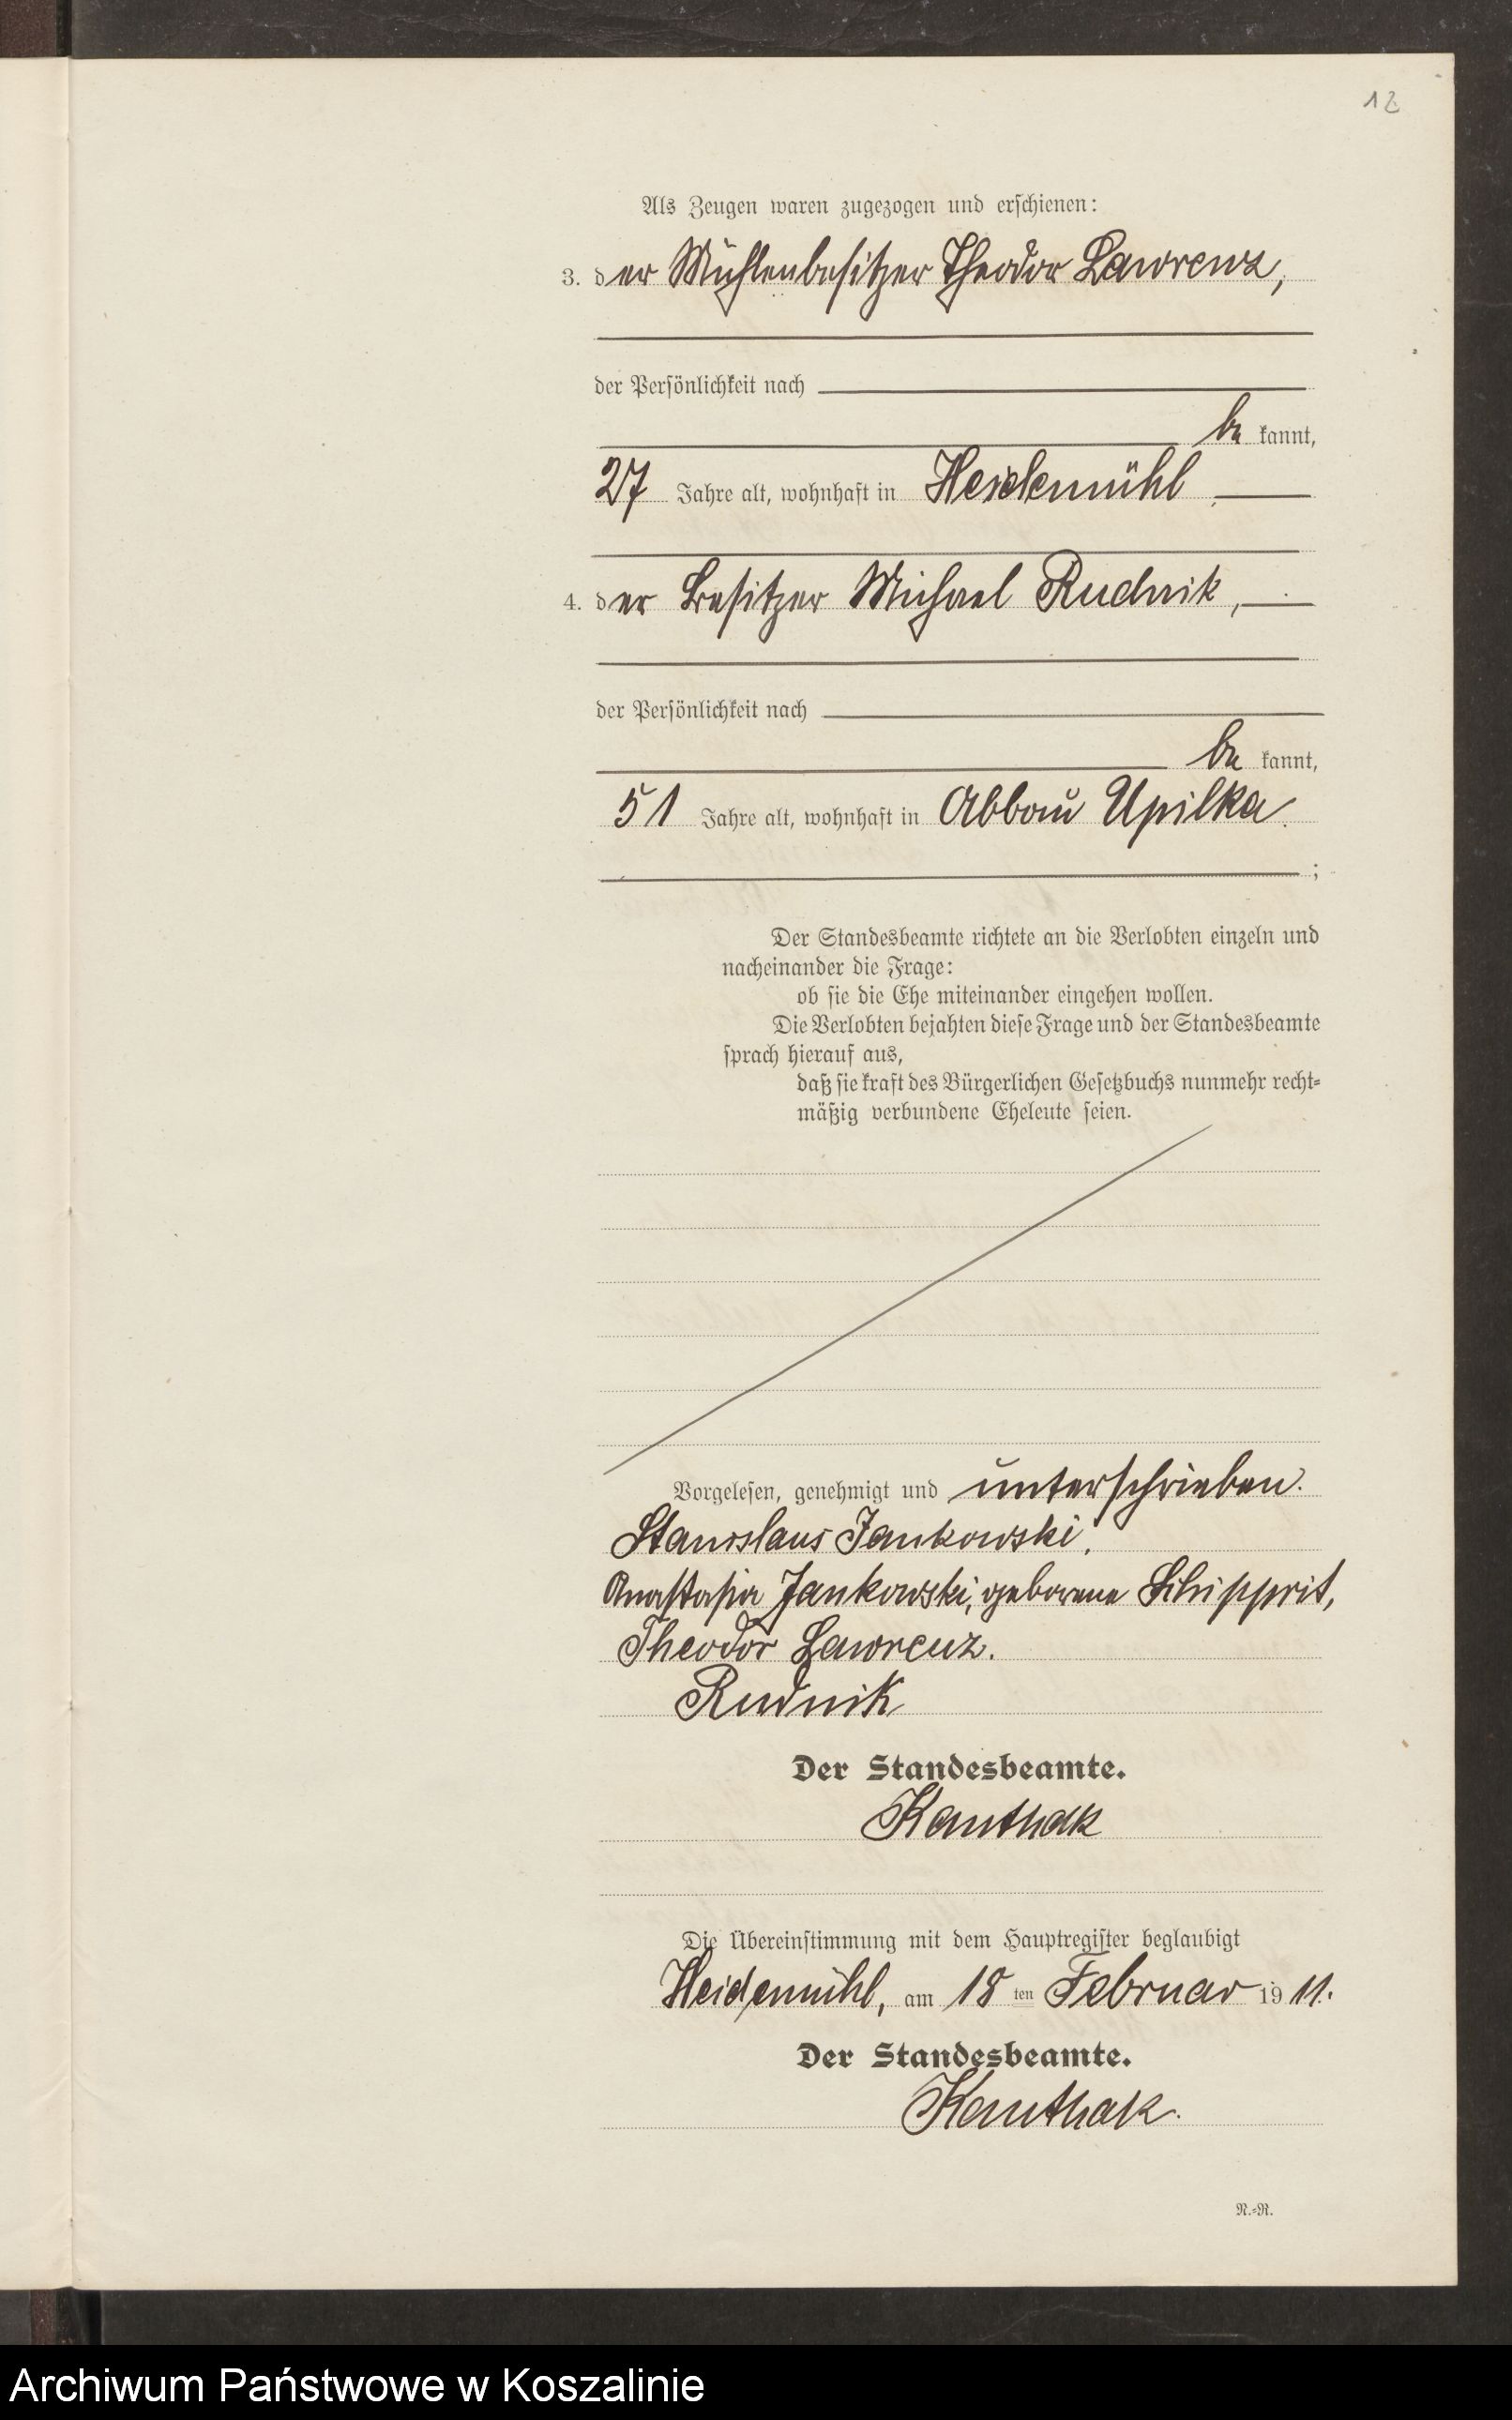 12
Als Zeugen waren zugezogen und erschienen:
3. der Mühlenbesitzer Theodor Lawrenz,
der Persönlichkeit nach
be kannt,
27 Jahre alt, wohnhaft in Heidemühl
4. der Besitzer Michael Rudnik,
der Persönlichkeit nach
be kannt,
51 Jahre alt, wohnhaft in Abbau Upilka.
;
Der Standesbeamte richtete an die Verlobten einzeln und
nacheinander die Frage:
ob sie die Ehe miteinander eingehen wollen.
Die Verlobten bejahten diese Frage und der Standesbeamte
sprach hierauf aus,
daß sie kraft des Bürgerlichen Gesetzbuchs nunmehr recht-
mäßig verbundene Eheleute seien.
Vorgelesen, genehmigt und unterschrieben.
Stanislaus Jankowski,
Anastasia Jankowski, geborene Schipprit,
Theodor Lawrenz.
Rudnik
Der Standesbeamte.
Kanthak
Die Übereinstimmung mit dem Hauptregister beglaubigt
Heidemühl, am 18 ten Februar 19 11.
Der Standesbeamte.
Kanthak.
N.-R.
Archiwum Państwowe w Koszalinie